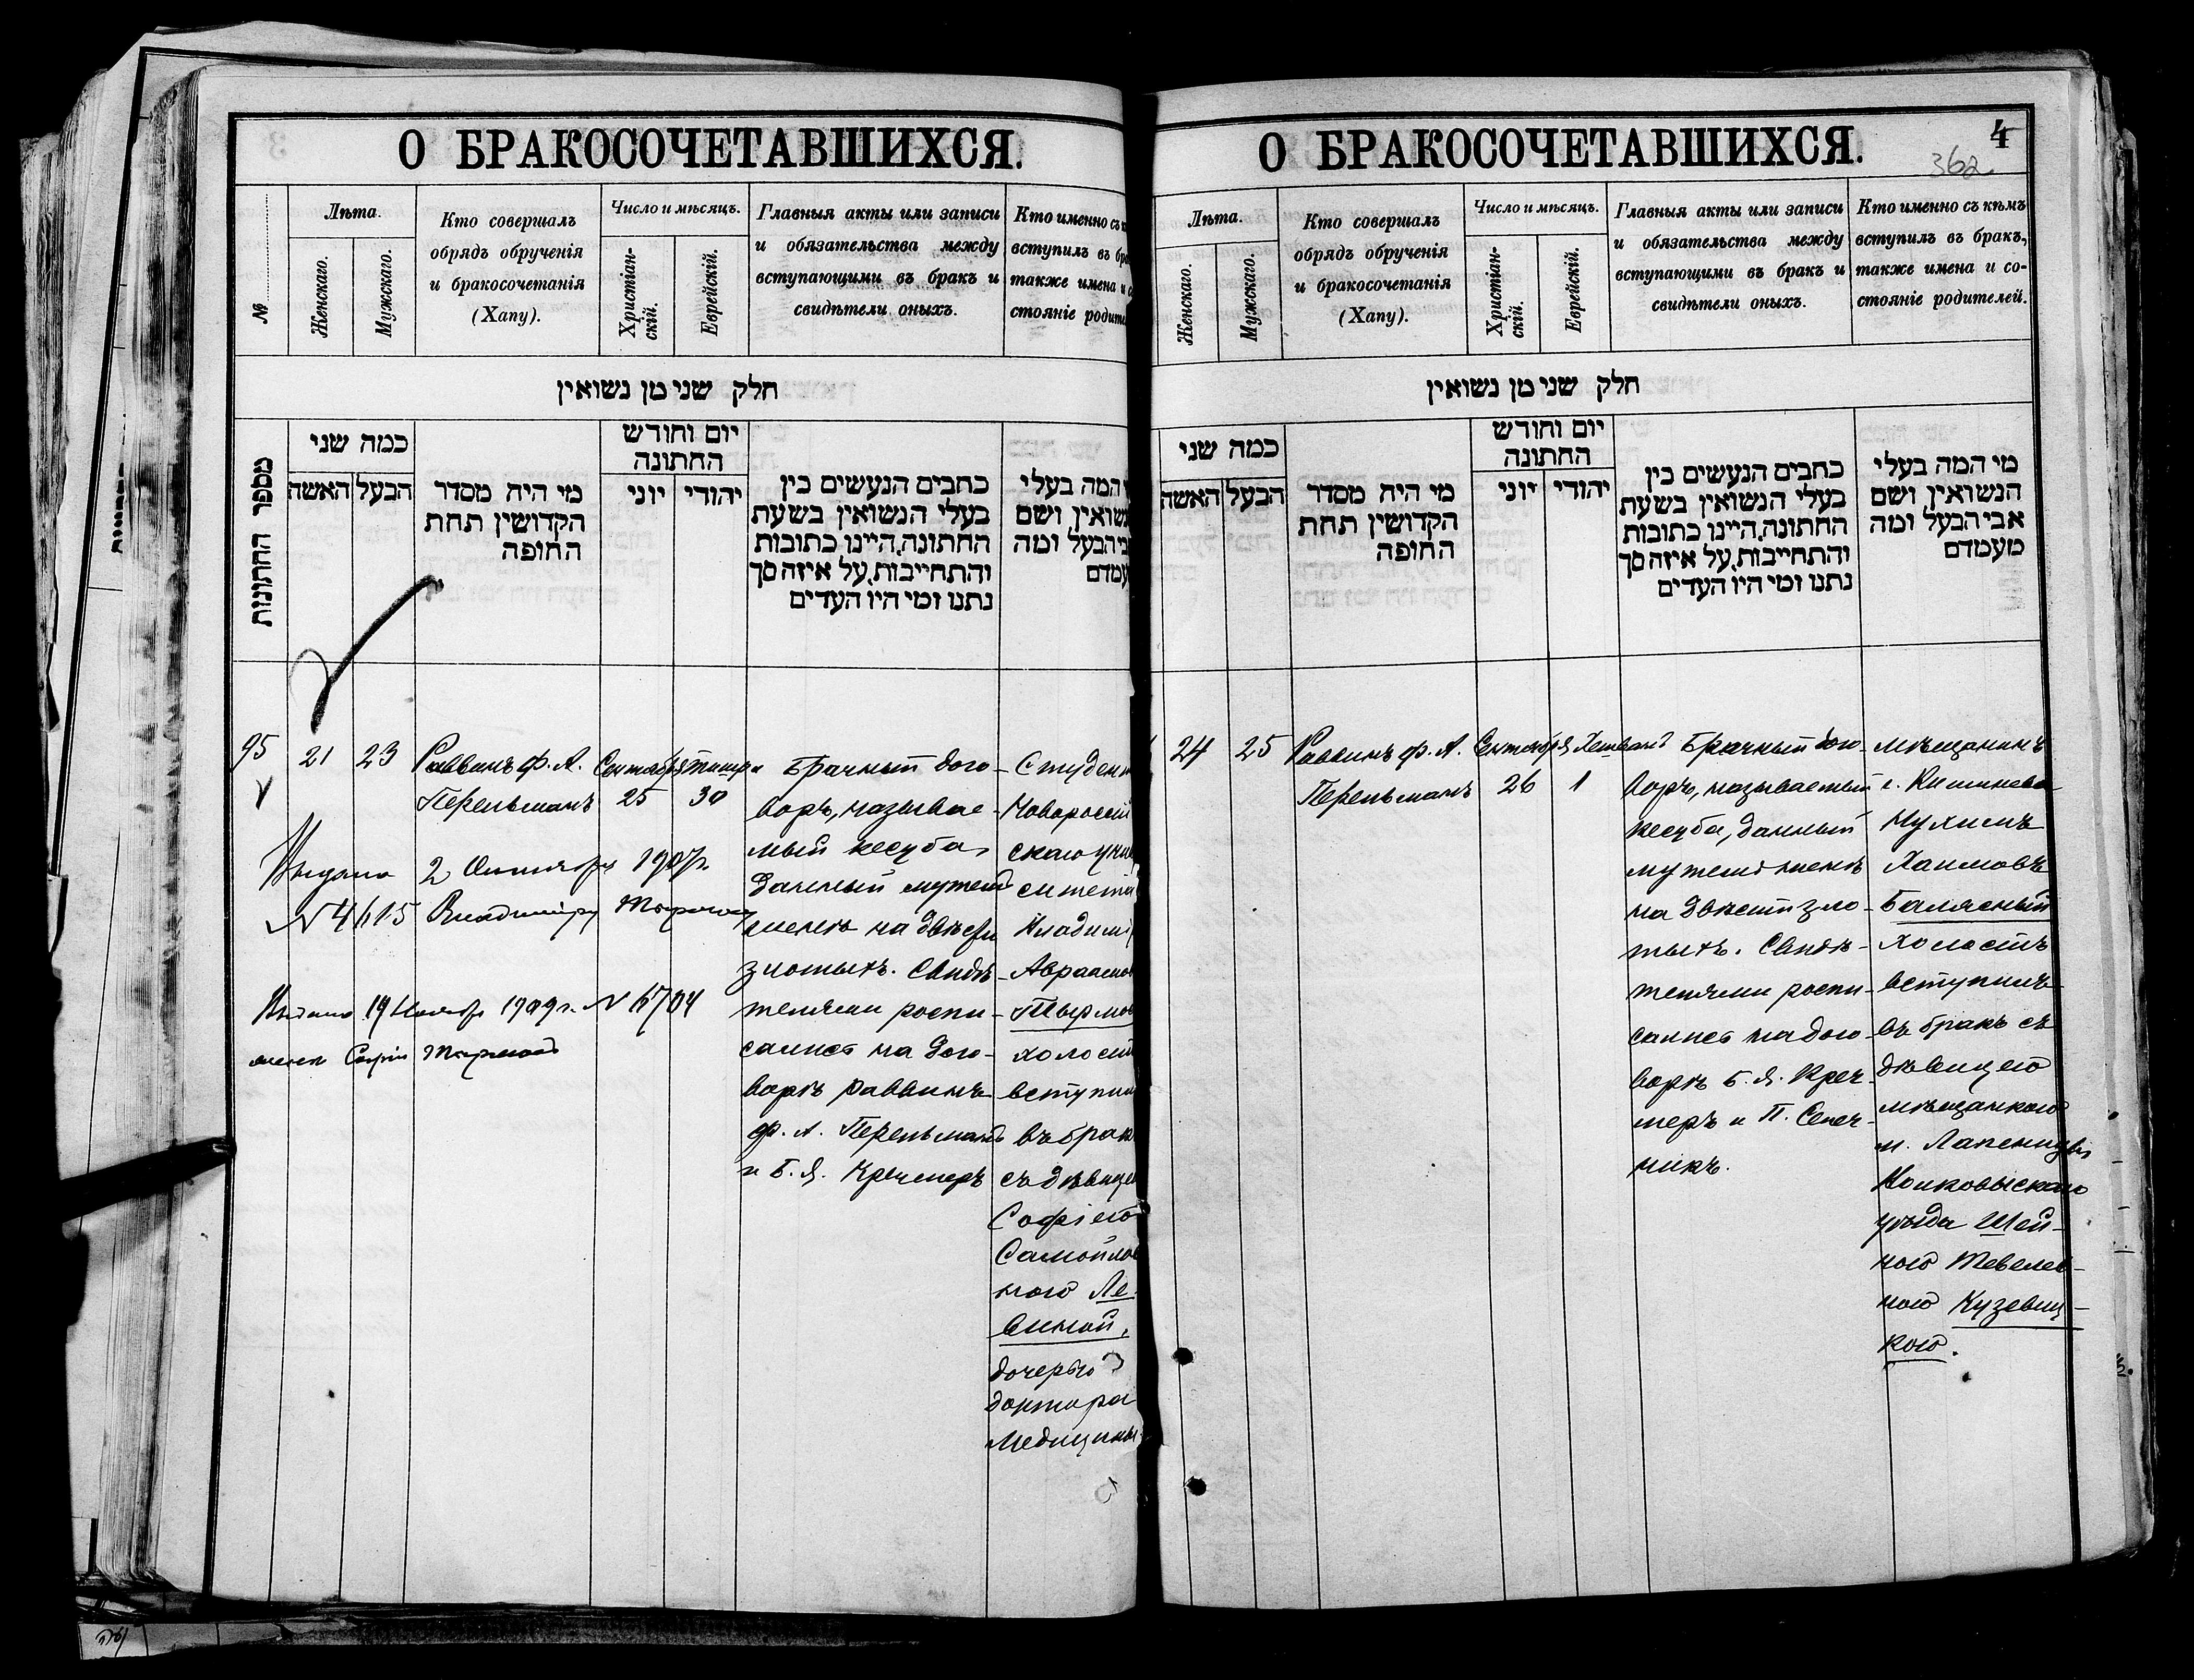 О БРАКОСОЧЕТАВШИХСЯ.
№
Лѣта.
Женскаго.
Мужскаго.
Кто совершалъ
обрядъ обрученія
и бракосочетанія
(Хапу).
Число и мѣсяцъ.
Христіан-
скій.
Еврейскій.
Главныя акты или записи
и обязательства между
вступающими въ бракъ и
свидѣтели оныхъ.
Кто именно съ
вступилъ въ
также имена и
стояніе
חלק שני מן נשואין
מספר החתונות
כמה שני
האשה
הבעל
מי היה מסדר
הקדושין תחת
החופה
יום וחודש
החתונה
יוני
יהודי
כתבים הנעשים בין
בעלי הנשואין בשעת
החתונה, היינו כתובות
והתחייבות, על איזה סך
נתנו ומי היו העדים
המה בעלי
ושם
ומה
95
21
23
Раввинъ Ф. А.
Перельманъ
Сентября
25
Тишри
30
Брачный дого-
воръ, называе-
мый кесуба,
данный мужемъ
женѣ на двѣсти
злотыхъ. Свидѣ-
телями роспи-
сались на дого-
ворѣ раввинъ
Ф. А. Перельманъ
и Б. Я. Кречмеръ
Студен
Новоросій
скаго уни
ситета
Владимі
Авраамов
Тырмо
холост
вступил
въ брак
съ дѣвице
Софіею
Самойлов
ною Ле-
виной,
дочерью
доктора
медицины
Выдано 2 Октября 1907г.
№ 4615 Владиміру
Выдано 19 Ноября 1909г. № 6704
Софіи
О БРАКОСОЧЕТАВШИХСЯ.
4
362
Лѣта.
Женскаго.
Мужскаго.
Кто совершалъ
обрядъ обрученія
и бракосочетанія
(Хапу).
Число и мѣсяцъ.
Христіан-
скій.
Еврейскій.
Главныя акты или записи
и обязательства между
вступающими въ бракъ и
свидѣтели оныхъ.
Кто именно съ кѣмъ
вступилъ въ бракъ,
также имена и со-
стояніе родителей.
חלק שני מן נשואין
כמה שני
האשה
הבעל
מי היה מסדר
הקדושין תחת
החופה
יום וחודש
החתונה
יוני
יהודי
כתבים הנעשים בין
בעלי הנשואין בשעת
החתונה, היינו כתובות
והתחייבות, על איזה סך
נתנו ומי היו העדים
מי המה בעלי
הנשואין ושם
אבי הבעל ומה
מעמדם
24
25
Раввинъ Ф. А.
Перельманъ
Сентября
26
Хешванъ
1
Брачный дого-
воръ, называемый
кесуба, данный
мужемъ женѣ
на двѣсти зло-
тыхъ. Свидѣ-
телями роспи-
сались на дого-
ворѣ Б. Я. Креч-
меръ и П. Сепеч-
никъ.
мѣщанинъ
г. Кишинева
Нухимъ
Хаимовъ
Балясный
холостъ
вступилъ
въ бракъ съ
дѣвицею
мѣщанкою
м. Лапеницы
Волковыскаго
уѣзда Шей-
ною Тевелев-
ною Кузевиц-
кою.